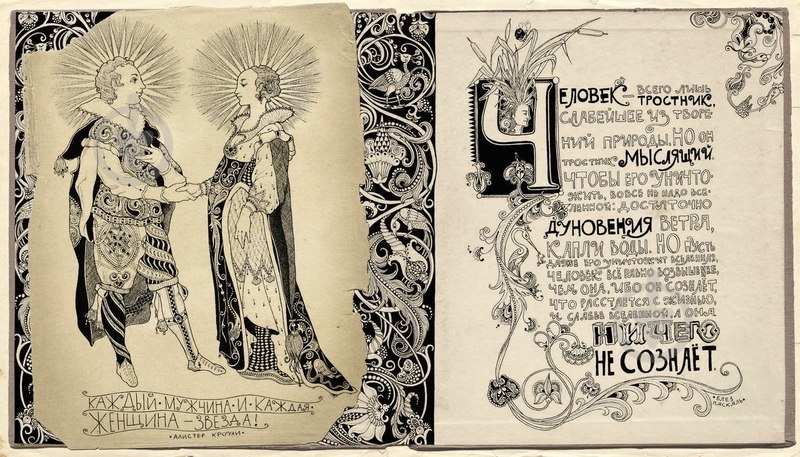 КАЖДЫЙ·МУЖЧИНА·И·КАЖДАЯ·
ЖЕНЩИНА – ЗВЕЗДА!
·АЛИСТЕР КРОУЛИ·
ЧЕЛОВЕК – ВСЕГО ЛИШЬ
ТРОСТНИК,
СЛАБЕЙШЕЕ ИЗ ТВОРЕ-
НИЙ ПРИРОДЫ. НО ОН
ТРОСТНИК МЫСЛЯЩИЙ.
ЧТОБЫ ЕГО УНИЧТО-
ЖИТЬ, ВОВСЕ НЕ НАДО ВСЕ-
ЛЕННОЙ: ДОСТАТОЧНО
ДУНОВЕНИЯ ВЕТРА,
КАПЛИ ВОДЫ. НО ПУСТЬ
ДАЖЕ ЕГО УНИЧТОЖИТ ВСЕЛЕННАЯ,
ЧЕЛОВЕК ВСЁ РАВНО ВОЗВЫШЕННЕЕ,
ЧЕМ ОНА, ИБО ОН СОЗНАЁТ,
ЧТО РАССТАЁТСЯ С ЖИЗНЬЮ,
И СЛАБЕЕ ВСЕЛЕННОЙ, А ОНА
НИЧЕГО
НЕ СОЗНАЁТ.
·БЛЕЗ
ПАСКАЛЬ·